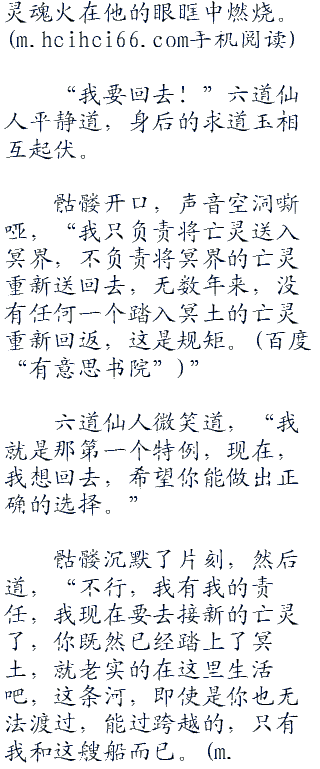 灵魂火在他的眼眶中燃烧。
(m.hcihci66.com手机阅读)
“我要回去！”六道仙
人平静道，身后的求道玉相
互起伏。
骷髅开口，声音空洞嘶
哑，“我只负责将亡灵送入
冥界，不负责将冥界的亡灵
重新送回去，无数年来，没
有任何一个踏入冥土的亡灵
重新回返，这是规矩。(百度
“有意思书院”)”
六道仙人微笑道，“我
就是那第一个特例，现在，
我想回去，希望你能做出正
确的选择。”
骷髅沉默了片刻，然后
道，“不行，我有我的责
任，我现在要去接新的亡灵
了，你既然已经踏上了冥
土，就老实的在这里生活
吧，这条河，即使是你也无
法渡过，能过跨越的，只有
我和这艘船而已。(m.